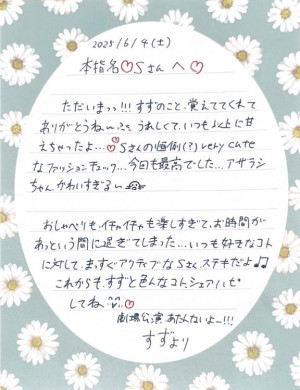 2025/6/14(土)
本指名♡Sさんへ♡
ただいまっっ!!! すずのこと、覚えててくれて
ありがとうね〜 うれしくて、いつも以上に甘
えちゃったよ...♡ Sさんの恒例(?) very cute
なファッションチェック...今回も最高でした... アザラシ
ちゃんかわいすぎるぅ
おしゃべりも、イチャイチャも楽しすぎて、お時間が
あっという間に過ぎてしまった...いつも好きなコト
に対して、まっすぐアクティブなSさん、ステキだよ♫
これからも、すずと色んなコトシェアハピ
してね ..♡
劇場公演 あたんないよー!!!
すずより